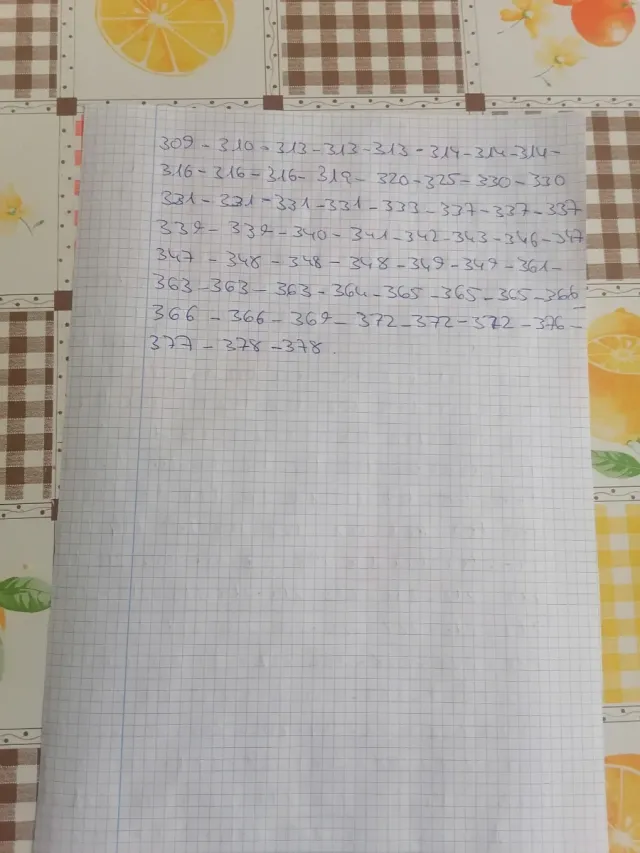 309 - 310 - 313 - 313 - 313 - 314 - 314 - 314 -
316 - 316 - 316 - 319 - 320 - 325 - 330 - 330
331 - 331 - 331 - 331 - 333 - 337 - 337 - 337
339 - 339 - 340 - 341 - 342 - 343 - 346 - 347
347 - 348 - 348 - 348 - 349 - 349 - 361 -
363 - 363 - 363 - 364 - 365 - 365 - 365 - 366
366 - 366 - 369 - 372 - 372 - 372 - 376 -
377 - 378 - 378.